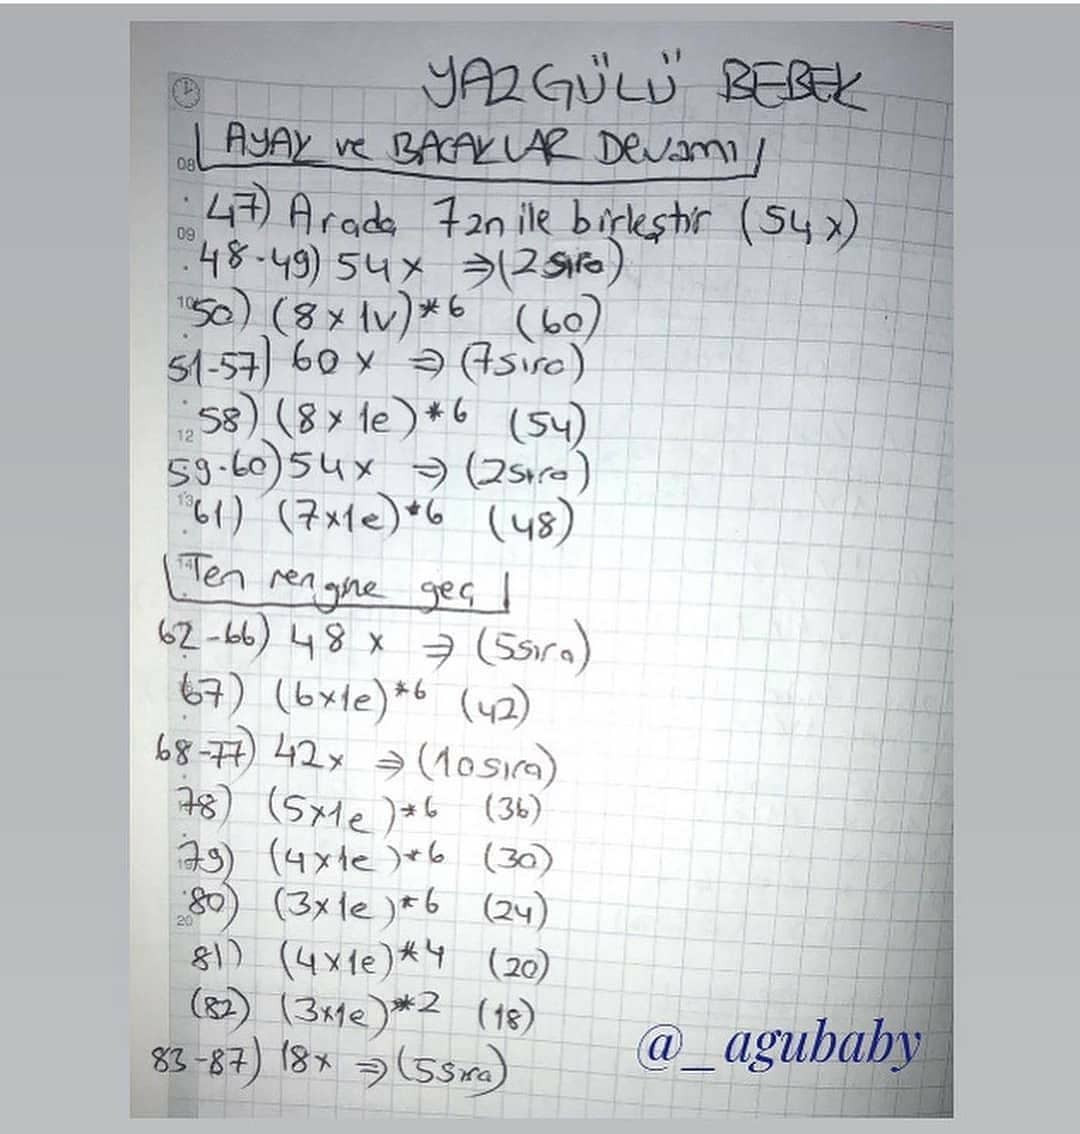 YAZGÜLÜ BEBEK
AYAK ve BACAKLAR Devamı
08
47) Arada 7zn ile birleştir (54x)
09
48-49) 54x ⇒ (2 sıra)
10
50) (8x1v)*6 (60)
51-57) 60x ⇒ (7sıra)
58) (8x1e)*6 (54)
12
59-60) 54x ⇒ (2sıra)
13
61) (7x1e)*6 (48)
14
Ten rengine geç
62-66) 48x ⇒ (5sıra)
67) (6x1e)*6 (42)
68-77) 42x ⇒ (10sıra)
78) (5x1e)*6 (36)
79) (4x1e)*6 (30)
80) (3x1e)*6 (24)
20
81) (4x1e)*4 (20)
(82) (3x1e)*2 (18)
83-87) 18x ⇒ (5sıra)
@_agubaby